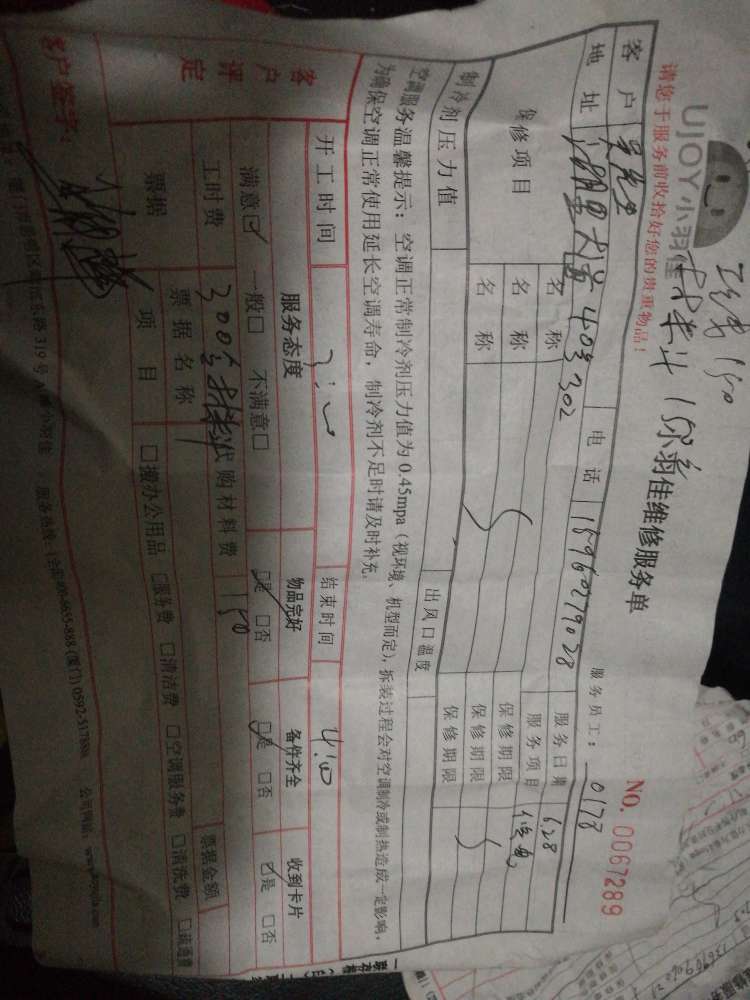 UJOY小羽佳
小羽佳维修服务单
NO. 0067289
请您于服务前收拾好您的贵重物品!
服务员工: 0178
客户 吴先生 电话 18960279028 服务日期 6.28
地址 湖里大道40号302 服务项目
保修项目 名称 保修期限
名称 保修期限
名称 保修期限
制冷剂压力值 出风口温度
空调服务温馨提示: 空调正常制冷剂压力值为0.45mpa (视环境、机型而定), 拆装过程会对空调制冷或制热造成一定影响,
为确保空调正常使用延长空调寿命, 制冷剂不足时请及时补充.
开工时间 结束时间 4:00
客户评定 服务态度 物品完好 备件齐全 收到卡片
满意☑ 一般□ 不满意□ ☑是 □否 ☑是 □否 ☑是 □否
工时费 代购材料费 150
票据 票据名称 票据金额
项目 □搬办公用品 □服务费 □清洁费 □空调服务费 □清洗费 □疏通费
客户签字: